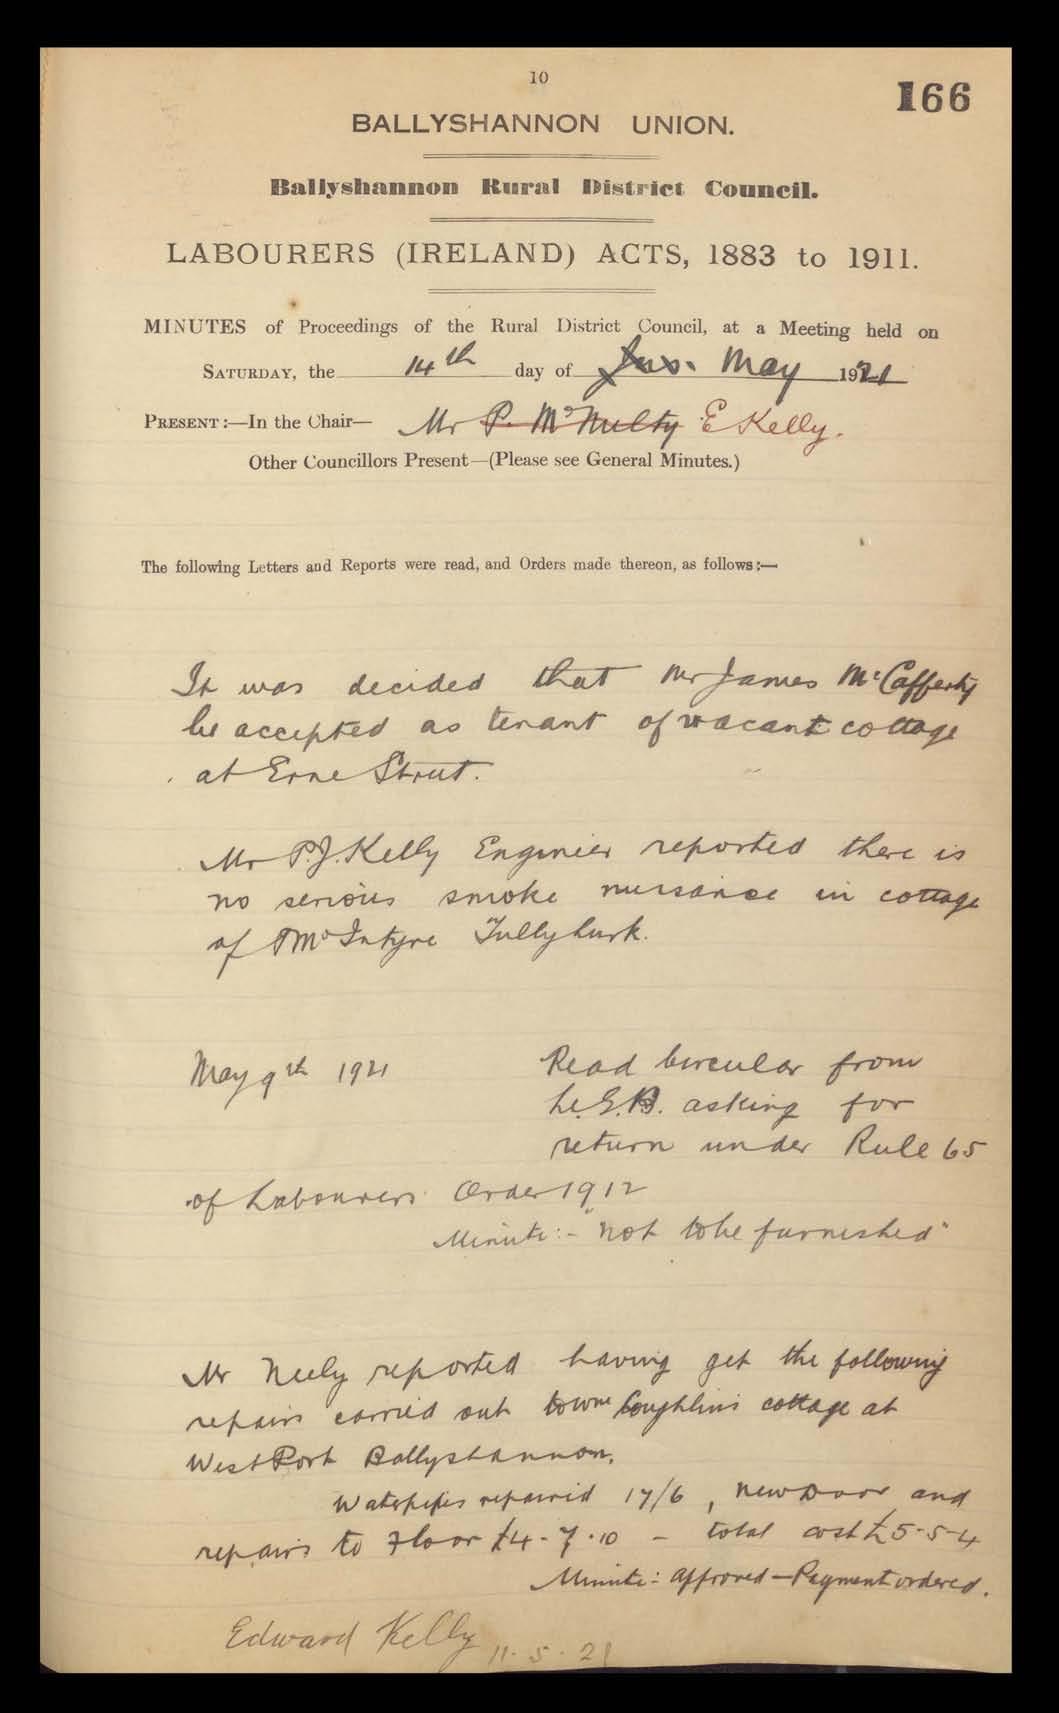 10
166
BALLYSHANNON UNION.
Ballyshannon Rural District Council.
LABOURERS (IRELAND) ACTS, 1883 to 1911.
MINUTES of Proceedings of the Rural District Council, at a Meeting held on
SATURDAY, the 14th day of May 1921
PRESENT:—In the Chair— Mr P. McNulty E Kelly.
Other Councillors Present—(Please see General Minutes.)
The following Letters and Reports were read, and Orders made thereon, as follows:—
It was decided that Mr James McCafferty
be accepted as tenant of vacant cottage
at Erne Street.
Mr P.J. Kelly Engineer reported there is
no serious smoke nuisance in cottage
of McIntyre Tullyhurk.
May 9th 1921 Read Circular from
L.G.B. asking for
return under Rule 65
of Labourers Order 1912
Minute:- "Not to be furnished"
Mr Neely reported having get the following
repairs carried out to Coughlins cottage at
West Port Ballyshannon.
Waterpipes repaired 17/6, new Door and
repairs to Floor £4-7-10 - total cost £5-5-4
Minute:- Approved - Payment ordered.
Edward Kelly 11.5.21